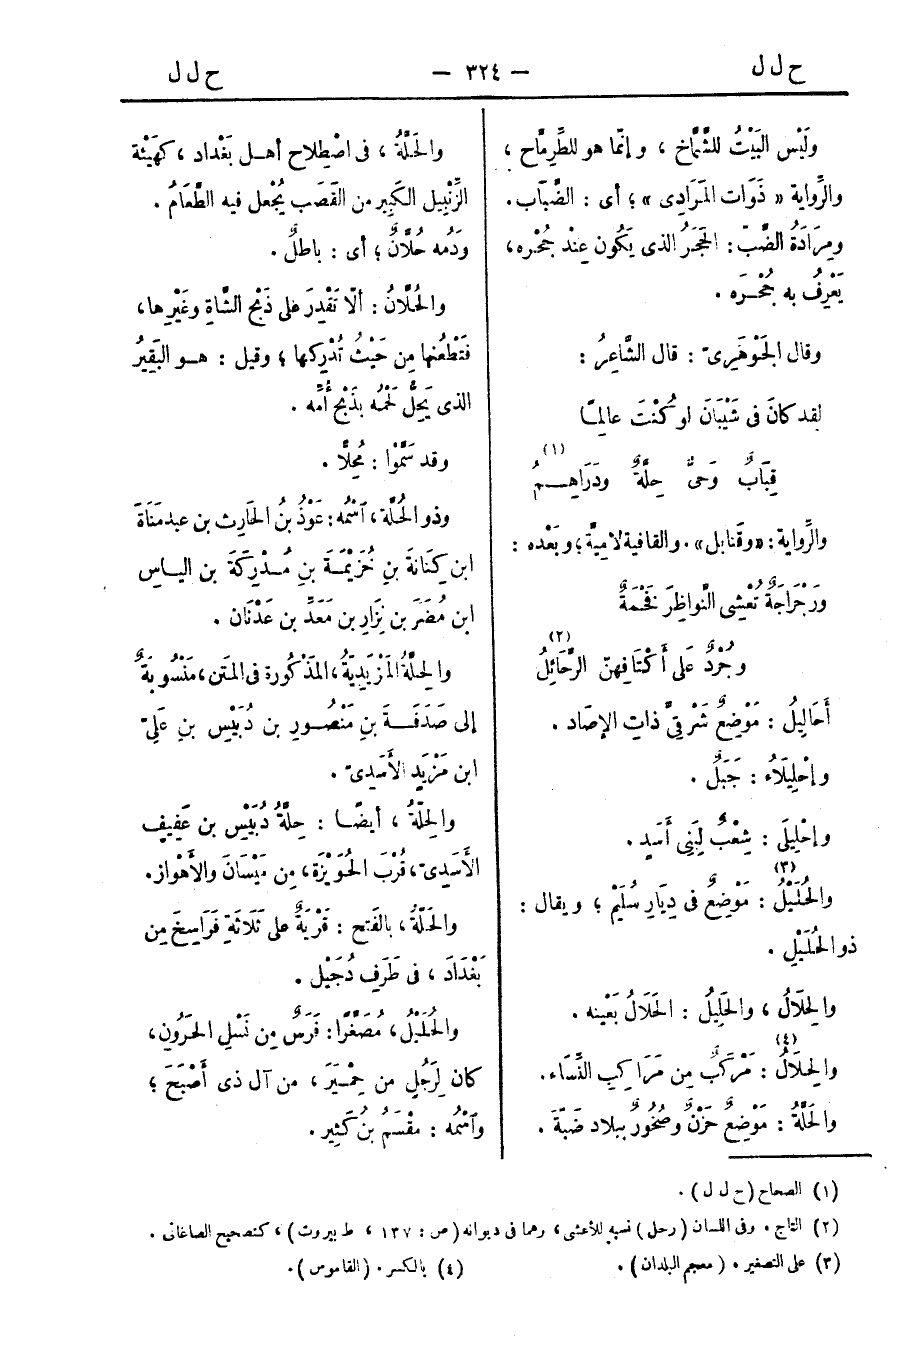 ح ل ل
— ٣٢٤ —
ح ل ل
ولَيْس البَيْتُ للشَّمّاخ ، وإنّما هو للطِّرِمّاح ،
والرِّواية « ذَوَات المَرَادِى » ؛ أى : الضِّبَاب .
ومِرَادَةُ الضَّبّ : الحَجَرُ الذى يَكُون عِنْد جُحْره ،
يَعْرِفُ به جُحْـرَه .
وقال الجَوْهَرِىّ : قال الشَّاعِرُ :
لقد كانَ فى شَيْبَانَ لو كُنْتَ عالِمًـا
قِبَابٌ وَحىٌّ حِلَّةٌ ودَرَاهِـــمُ (١)
والرِّواية : «وقَنابل» . والقافية لامِيةٌ ؛ وبَعْده :
ورَجْرَاجَةٌ تُعْشِى النَّواظِرَ فَخْمَةٌ
وجُرْدٌ عَلَى أَكْتَافِهنّ الرَّحَائِلُ (٢)
أَحَالِيلُ : مَوْضِعٌ شَرْقِىَّ ذاتِ الإصَاد .
وإحْلِيلَاءُ : جَبَلٌ .
وإحْلِيلَى : شِعْبٌ لِبَنِى أَسَدٍ .
والحُلَيْلُ (٣) : مَوْضِعٌ فى دِيَارِ سُلَيْم ؛ ويقال :
ذو الحُلَيْلِ .
والحِلَالُ ، والحَلِيلُ : الحَلَالُ بَعَيْنه .
والحِلَالُ (٤) : مَرْكَبٌ مِن مَرَاكِبِ النِّسَاء .
والحَلَّةُ : مَوْضِعٌ حَزْنٌ وصُخُورٌ ببلاد ضَبَّةَ .
والحَلَّةُ ، فى اصْطِلاح أهـل بَغْداد ، كهَيْئة
الزِّنْبِيل الكَبِير من القَصَب يُجْعل فيه الطَّعَامُ .
ودَمُه حُلَّانٌ ؛ أى : باطلٌ .
والحُلَّانُ : ألّا تَقْدِرَ على ذَبْح الشَّاةِ وغَيْرِها ،
فتَطْعُنها مِن حَيْثُ تُدْرِكها ؛ وقيل : هـو البَقِيرُ
الذى يَحِلُّ لَحْمُه بذَبْحِ أُمِّه .
وقد سَمَّوْا : مُحِلًّا .
وذو الحُلَّة ، اسْمُه : عَوْذُ بنُ الحَارِث بن عبد مَنَاةَ
ابن كِنَانَةَ بنِ خُزَيْمَـةَ بنِ مُـدْرِكَةَ بن الياس
ابن مُضَرَ بن نِزَارِ بن مَعَدِّ بن عَدْنَان .
والحِلَّةُ المَزْيَدِيّةُ ، المَذْكُورة فى المَتن ، مَنْسُوبَةٌ
إلى صَدَقَــةَ بنِ مَنْصُـورِ بن دُبَيْسِ بنِ عَلِىّ
ابن مَزْيَدٍ الأَسَدِىّ .
والحِلّةُ ، أيضًـا : حِلّةُ دُبَيْسِ بن عَفِيفٍ
الأَسَدِىّ ، قُرْبَ الحُوَيْزَة ، مِن مَيْسَانَ والأَهْوَاز.
والحَلّةُ ، بالفَتح : قَرْيَةٌ على ثَلَاثَةِ فَرَاسِخَ مِن
بَغْدَادَ ، فى طَرَفِ دُجَيْل .
والحُلَيْلُ ، مُصَغَّرًا : فَرَسٌ مِن نَسْلِ الحَرُون ،
كان لِرَجُلٍ من حِمْـيَرَ ، من آل ذى أَصْبَحَ ؛
واسْمُه : مِقْسَمُ بنُ كَثِيرٍ .
(١) الصحاح (ح ل ل) .
(٢) التاج . وفى اللسان (رحل) نسبه للأعشى ، وهما فى ديوانه (ص : ١٣٧ ، ط بيروت) ، كتصحيح الصاغانى .
(٣) على التصغير . (معجم البلدان) .
(٤) بالكسر . (القاموس) .